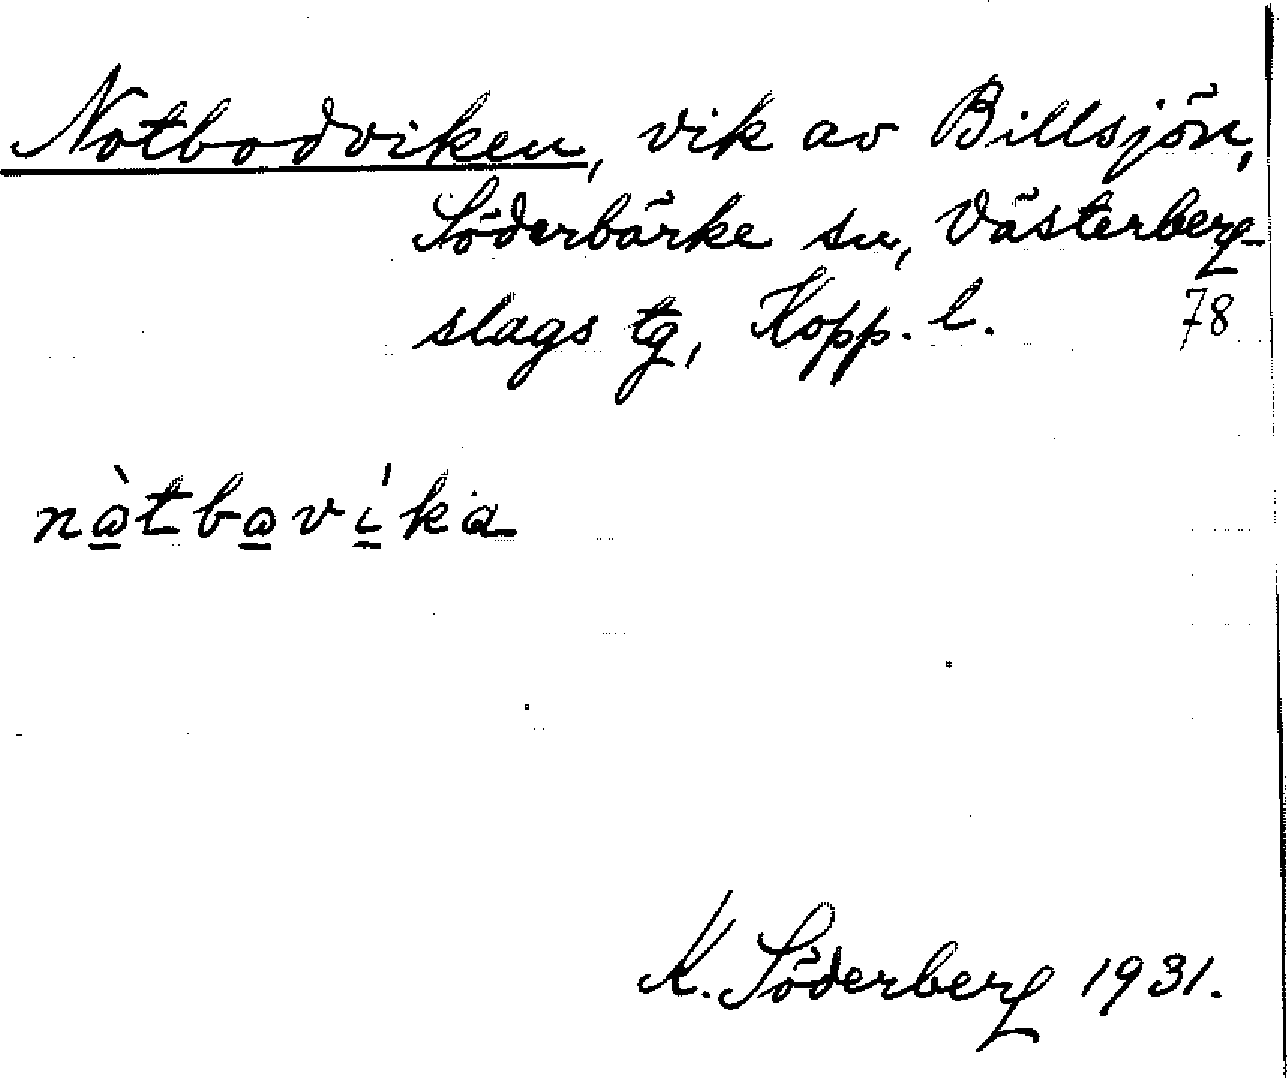 Notbodviken, vik av Billsjön,
Söderbärke sn, Västerberg-
slags tg, Kopp. l.
78
nàtbavíka
K. Söderberg 1931.